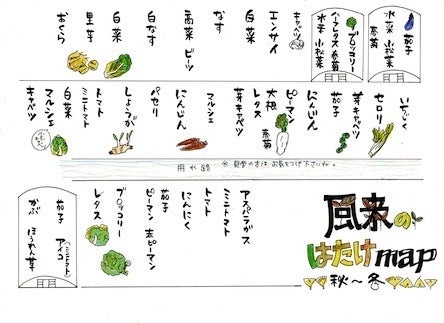 茄子
水菜 小松菜
春菊
ブロッコリー
ハーブレタス 春菊
水菜 小松菜
キャベツ
エンサイ
白菜
なす
高菜 ビーツ
白なす
白菜
里芋
おくら
いちじく
セロリ
芽キャベツ
茄子
にんじん
ピーマン
大根
レタス 春菊
芽キャベツ
マルシェ
にんじん
パセリ
しょうが
トマト
ミニトマト
白菜
マルシェ
キャベツ
用水路
アスパラガス
ミニトマト
トマト
にんにく
茄子
ピーマン 赤ピーマン
ブロッコリー
レタス
アイコ(ミニトマト)
茄子
かぶ ほうれん草
風来の
はたけmap
秋〜冬